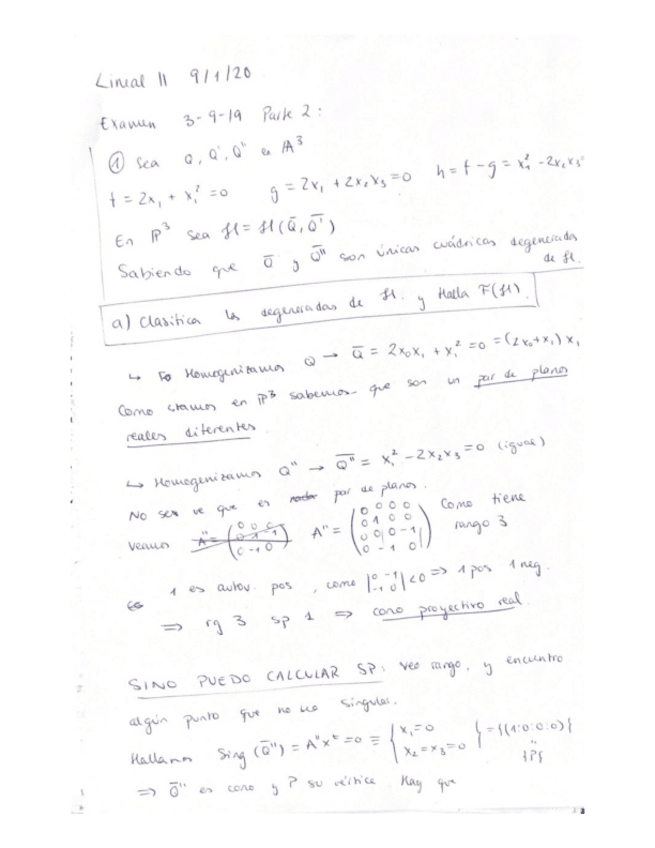 Lineal II 9/1/20
Examen 3-9-19 Parte 2:
① Sea Q, Q', Q'' en A³
f = 2x₁ + x₁² = 0 g = 2x₁ + 2x₂x₃ = 0 h = f - g = x₁² - 2x₂x₃
En P³ sea H = H(Q̄, Q̄')
Sabiendo que Q̄ y Q̄'' son únicas cuádricas degeneradas
de H.
a) Clasifica las degeneradas de H. y Halla F(H).
↳ Homogenizamos Q → Q̄ = 2x₀x₁ + x₁² = 0 = (2x₀+x₁)x₁
Como estamos en P³ sabemos que son un par de planos
reales diferentes
↳ Homogenizamos Q'' → Q̄'' = x₁² - 2x₂x₃ = 0 (igual)
No se ve que es par de planos.
Veamos A'' = (0 0 0 0 / 0 1 0 0 / 0 0 0 -1 / 0 0 -1 0) Como tiene
rango 3
1 es autov. pos, como |0 -1 / -1 0| < 0 ⇒ 1 pos 1 neg.
⇒ rg 3 sp 1 ⇒ cono proyectivo real.
SINO PUEDO CALCULAR SP: Veo rango, y encuentro
algún punto que no sea singular.
Hallamos Sing (Q̄'') = A''xᵗ = 0 ≡ { x₁=0 / x₂=x₃=0 } = {(1:0:0:0)}
{P}
⇒ Q̄'' es cono y P su vértice. Hay que